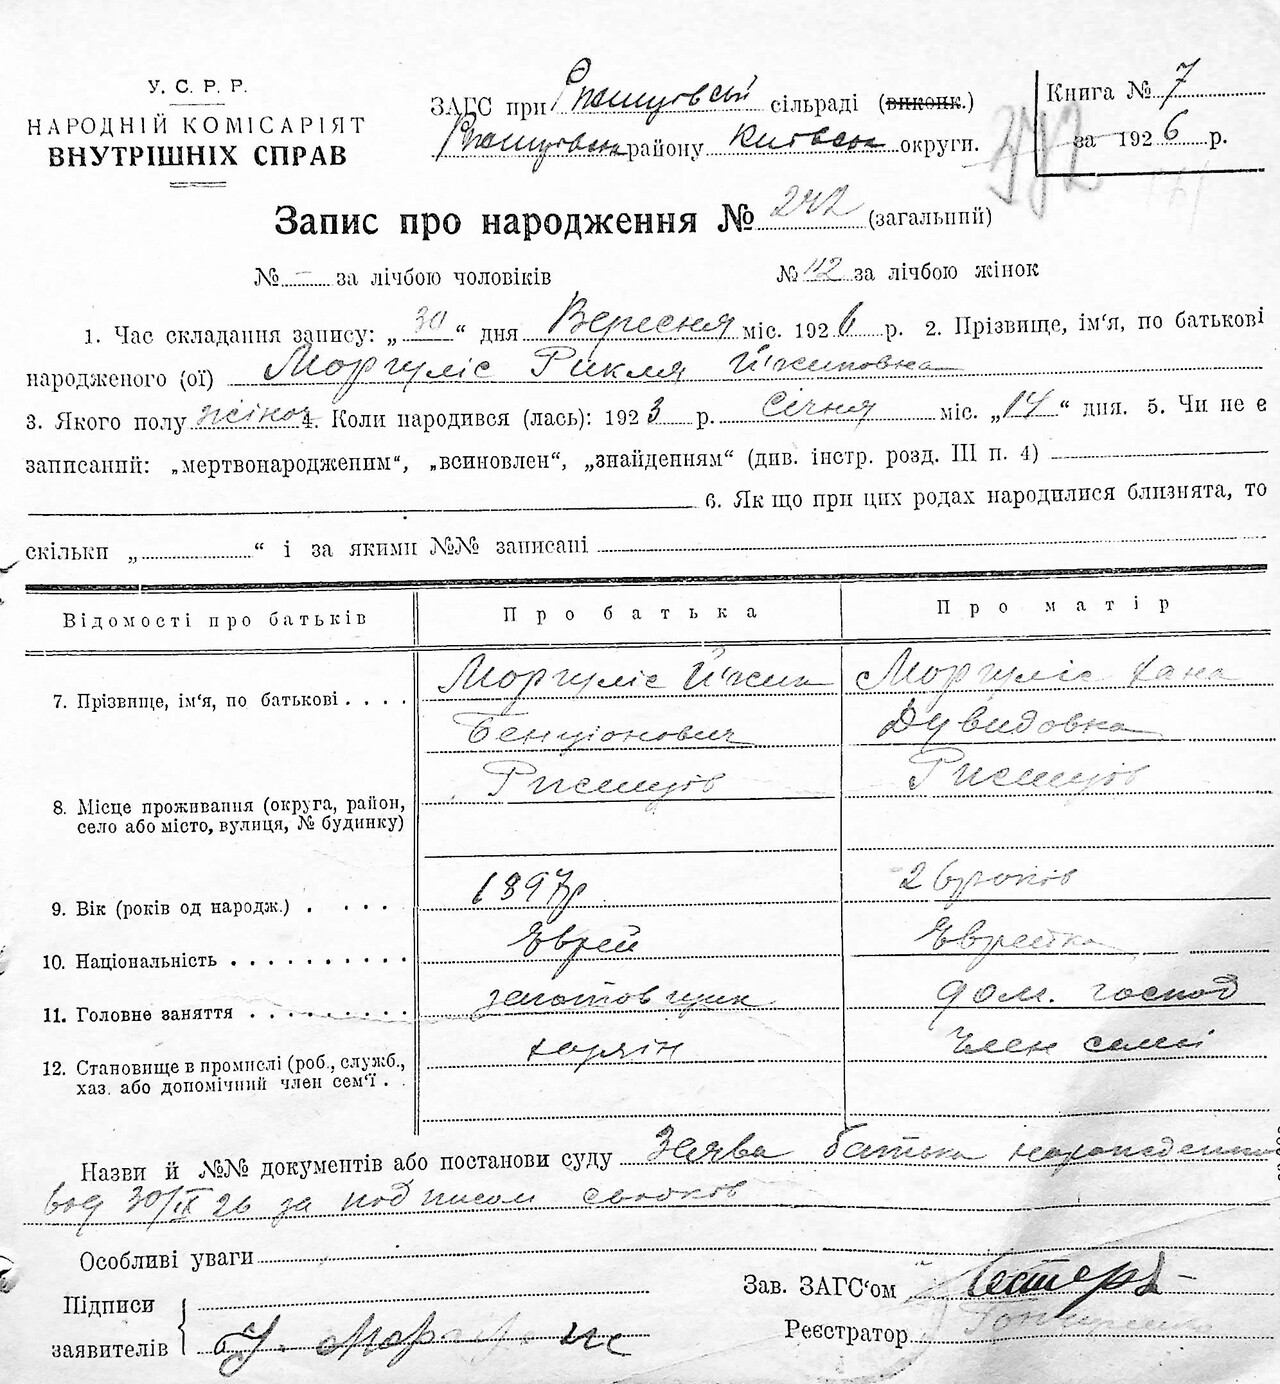 У. С. Р. Р.
НАРОДНІЙ КОМІСАРІЯТ
ВНУТРІШНІХ СПРАВ
ЗАГС при Ржищівсьй сільраді (виконк.)
району Київськ округи.
Книга № 7
за 1926 р.
242
Запис про народження № 242 (загальний)
№ - за лічбою чоловіків № 112 за лічбою жінок
1. Час складання запису: „30“ дня Вересня міс. 1926 р. 2. Прізвище, ім'я, по батькові
народженого (ої) Моргуліс Рикля Йжиповна
3. Якого полу жіноч 4. Коли народився (лась): 1923 р. Січня міс. „14“ дня. 5. Чи не є
записаний: „мертвонародженим“, „всиновлен“, „знайденням“ (див. інстр. розд. III п. 4)
6. Як що при цих родах народилися близнята, то
скільки „ “ і за якими №№ записані
Відомості про батьків Про батька Про матір
7. Прізвище, ім'я, по батькові Моргуліс Моргуліс Хана
Бенціонович Дувидовна
8. Місце проживання (округа, район, село або місто, вулиця, № будинку) Ржищів Ржищів
9. Вік (років од народж.) 1897р 26 років
10. Національність Єврей Єврейка
11. Головне заняття дом. господ
12. Становище в промислі (роб., служб., хаз. або допомічний член сем'ї Член семї
Назви й №№ документів або постанови суду Заява батька народженно
від 30/IX 26 за подписом свідків
Особливі уваги
Підписи
заявителів
Зав. ЗАГС'ом
Реєстратор